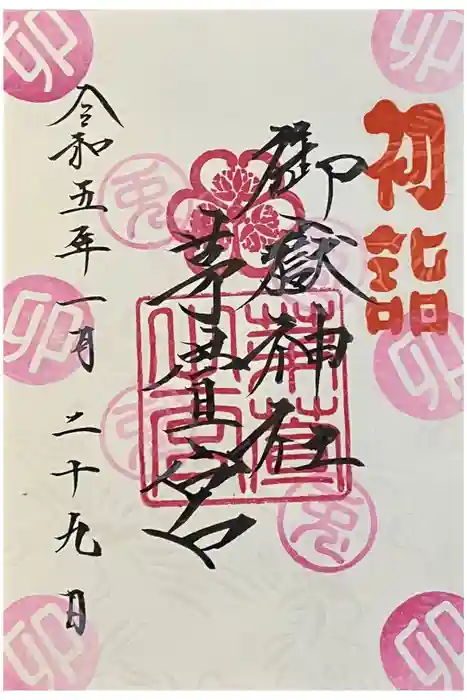 初詣
御嶽神社
茅萱宮
令和五年一月二十九日
卯
卯
卯
卯
卯
卯
兎
兎
兎